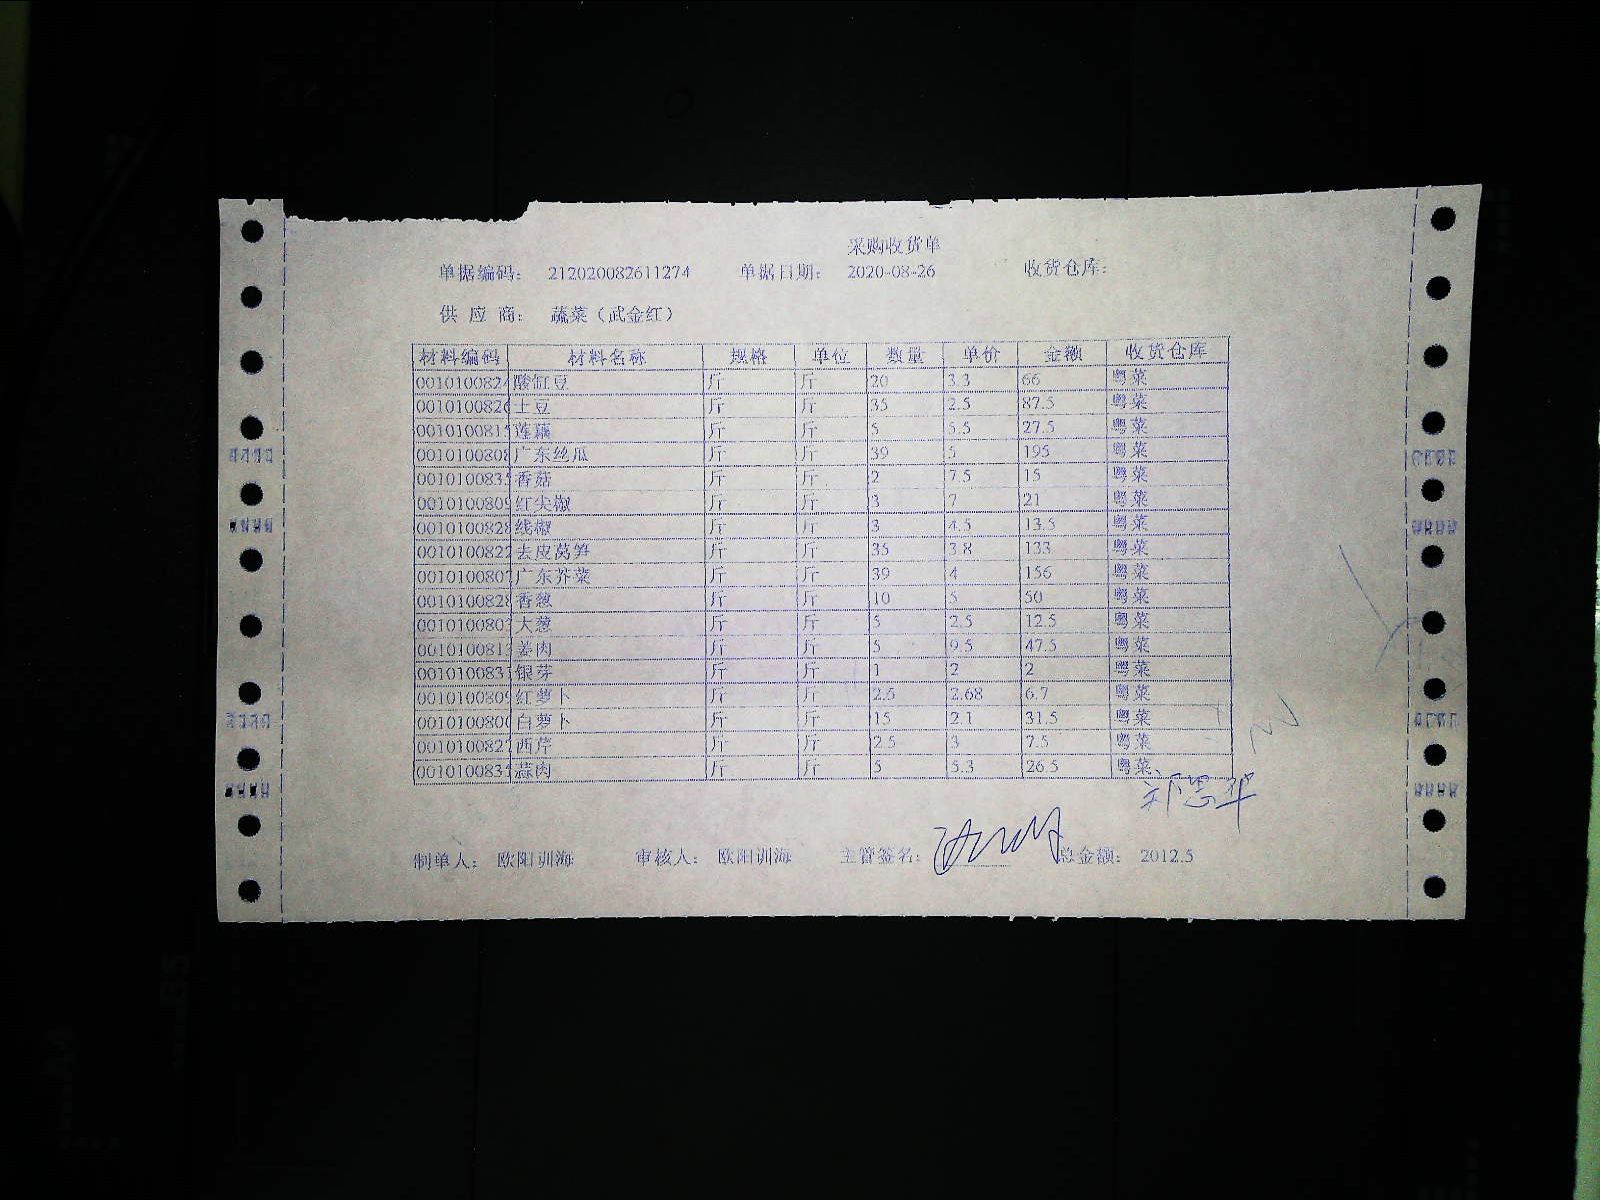 采购收货单
单据编码： 212020082611274 单据日期： 2020-08-26 收货仓库：
供 应 商： 蔬菜（武金红）
材料编码 材料名称 规格 单位 数量 单价 金额 收货仓库
0010100824 酸缸豆 斤 斤 20 3.3 66 粤菜
0010100826 土豆 斤 斤 35 2.5 87.5 粤菜
001010081 莲藕 斤 斤 5 5.5 27.5 粤菜
001010080 广东丝瓜 斤 斤 39 5 195 粤菜
001010083 香菇 斤 斤 2 7.5 15 粤菜
0010100809 红尖椒 斤 斤 3 7 21 粤菜
001010082 线椒 斤 斤 3 4.5 13.5 粤菜
0010100822 去皮莴笋 斤 斤 35 3.8 133 粤菜
0010100807 广东芥菜 斤 斤 39 4 156 粤菜
001010082 香葱 斤 斤 10 5 50 粤菜
001010080 大葱 斤 斤 5 2.5 12.5 粤菜
001010081 姜肉 斤 斤 5 9.5 47.5 粤菜
001010083 银芽 斤 斤 1 2 2 粤菜
0010100809 红萝卜 斤 斤 2.5 2.68 6.7 粤菜
0010100800 白萝卜 斤 斤 15 2.1 31.5 粤菜
0010100827 西芹 斤 斤 2.5 3 7.5 粤菜
001010083 蒜肉 斤 斤 5 5.3 26.5 粤菜
制单人： 欧阳训海 审核人： 欧阳训海 主管签名： 总金额： 2012.5